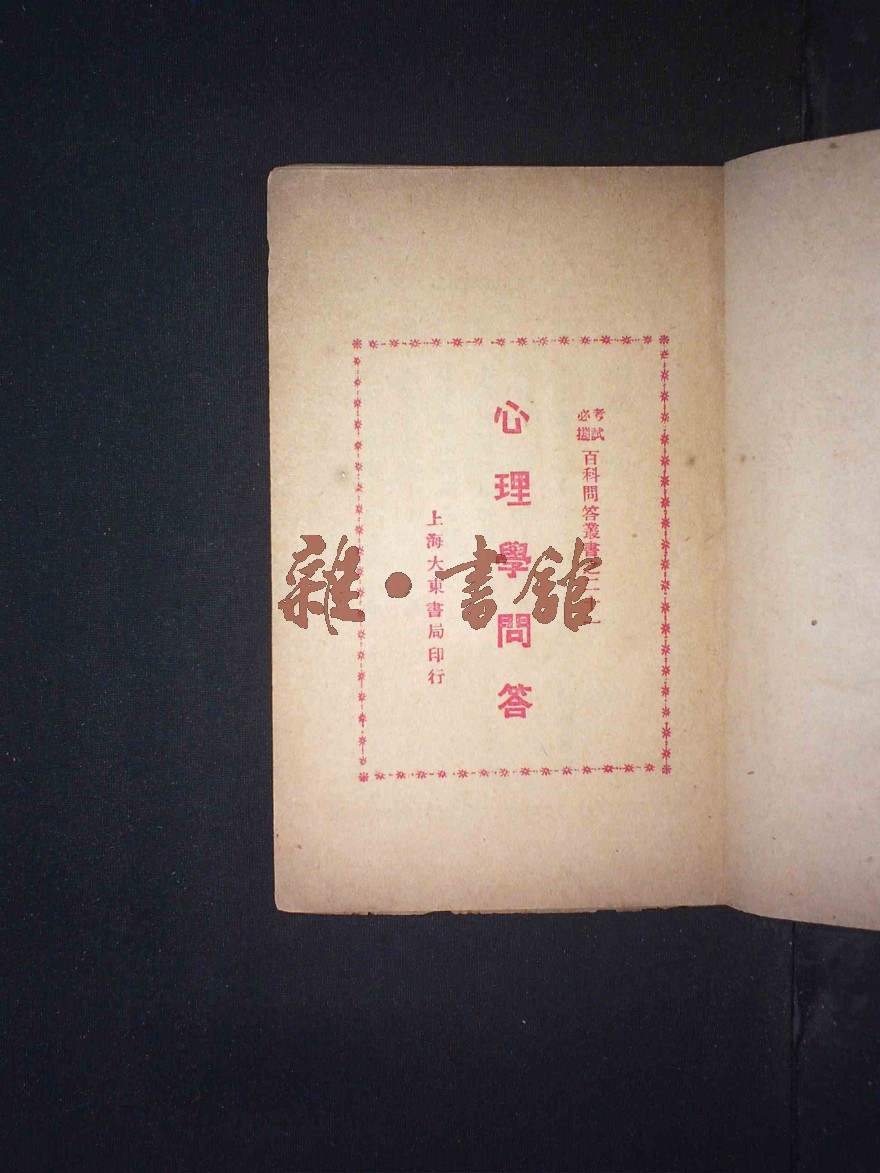 考試必携 百科問答叢書之二十一
心理學問答
上海大東書局印行
雜·書館